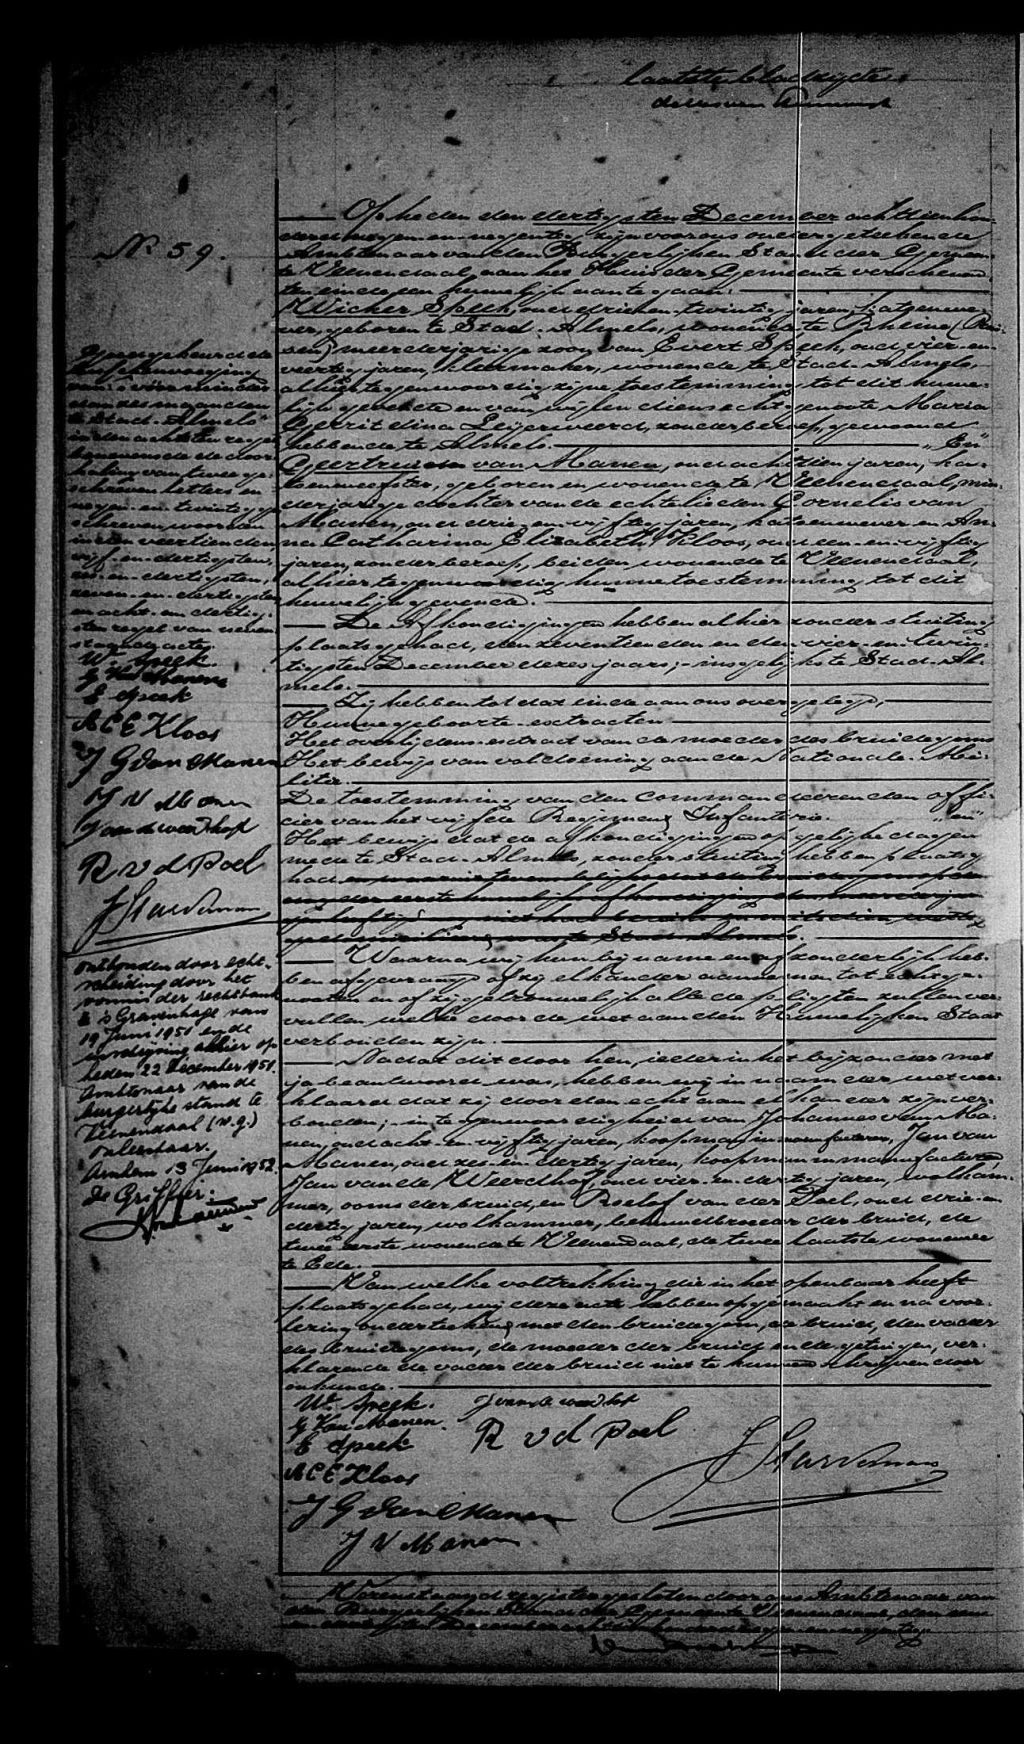 laatste bladzijde
N° 59.
Op heden den dertigsten December achttienhon-
derd negen-en-negentig, zijn voor ons ondergeteekende
Ambtenaar van den Burgerlijken Stand der Gemeen-
te Veenendaal, aan het Huis der Gemeente verschenen
ten einde een huwelijk aan te gaan:
Wicher Speek, oud drie-en-twintig jaren, katoenwe-
ver, geboren te Stad-Almelo, wonende te Rheine (Prui-
sen) meerderjarige zoon van Evert Speek, oud vier-en-
veertig jaren, kleermaker, wonende te Stad-Almelo,
alhier tegenwoordig zijne toestemming tot dit huwe-
lijk gevende en van wijlen diens echtgenoote Maria
Gerritdina Leijerweerd, zonder beroep, gewoond
hebbende te Almelo. "En"
Geertruida van Manen, oud achttien jaren, ka-
toenweefster, geboren en wonende te Veenendaal, min-
derjarige dochter van de echtelieden Cornelis van
Manen, oud drie-en-vijftig jaren, katoenwever en An-
na Catharina Elizabeth Kloos, oud een-en-vijftig
jaren, zonder beroep, beiden wonende te Veenendaal,
alhier tegenwoordig hunne toestemming tot dit
huwelijk gevende.
De Afkondigingen hebben alhier zonder stuiting
plaats gehad, den zeventienden en den vier-en-twin-
tigsten December dezes jaars; insgelijks te Stad-Al-
melo.
Zij hebben tot dat einde aan ons overgelegd,
Hunne geboorte-extracten
Het overlijdens-extract van de moeder des bruidegoms
Het bewijs van voldoening aan de Nationale Mi-
litie.
De toestemming van den commandeerenden offi-
cier van het vijfde Regiment Infanterie. "en"
Het bewijs dat de afkondigingen op gelijke dagen
mede te Stad-Almelo, zonder stuiting hebben plaats ge-
had
Waarna wij hun bij name en afzonderlijk heb-
ben afgevraagd of zij elkander aannemen tot echtge-
nooten en of zij getrouwelijk alle de pligten zullen ver-
vullen welke door de wet aan den Huwelijken Staat
verbonden zijn.
Nadat dit door hen, ieder in het bijzonder met
ja beantwoord was, hebben wij in naam der wet ver-
klaard dat zij door den echt aan elkander zijn ver-
bonden; in tegenwoordigheid van Johannes van Ma-
nen, oud acht-en-vijftig jaren, koopman in manufacturen, Jan van
Manen, oud zes-en-dertig jaren, koopman in manufacturen,
Jan van de Weerdhof, oud vier-en-dertig jaren, wolkam-
mer, ooms der bruid, en Roelof van der Poel, oud drie-en-
dertig jaren, wolkammer, behuwdbroeder der bruid, de
twee eerste wonende te Veenendaal, de twee laatste wonende
te Ede.
Van welke voltrekking die in het openbaar heeft
plaats gehad, wij deze acte hebben opgemaakt en na voor-
lezing onderteekend met den bruidegom, de bruid, den vader
des bruidegoms, de moeder der bruid en de getuigen, ver-
klarende de vader der bruid niet te kunnen schrijven door
onkunde.
W. Speek. J van de weerdhof
G Van Manen.
E Speek
R v d Poel
A C E Kloos
J G Van Manen
J V Manen
Goedgekeurd de
bijvoeging
te Stad-Almelo
in den achtsten regel
benevens de door-
haling van twee ge-
schreven letters en
negen-en-twintig ge-
schreven woorden
in den veertienden,
vijf-en-dertigsten,
zes-en-dertigsten,
zeven-en-dertigsten
en acht-en-dertig-
sten regel van neven-
staande acte.
W. Speek.
G Van Manen
E Speek
A C E Kloos
J G Van Manen
J V Manen
J van de weerdhof
R v d Poel
ontbonden door echt-
scheiding door het
vonnis der rechtbank
te 's Gravenhage van
19 Juni 1951 en de
inschrijving alhier op
heden 22 December 1951.
Ambtenaar van de
burgerlijke stand te
Veenendaal (w.g.)
Arnhem 13 Juni 1952.
De Griffier: